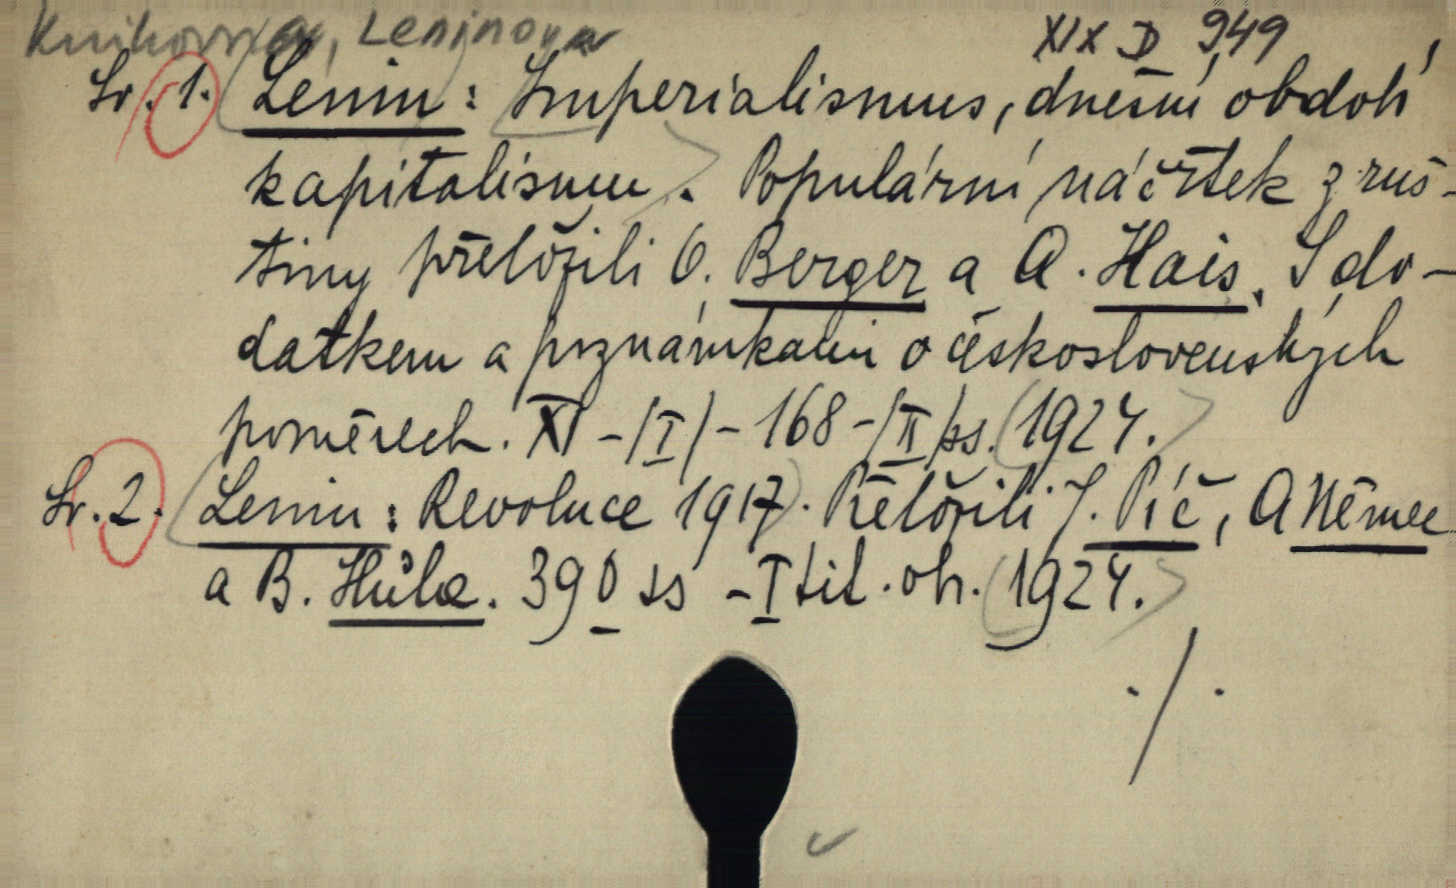 Knihovna, Leninova
XIX D 949
Sv. 1. Lenin: Imperialismus, dnešní období
kapitalismu. Populární náčrtek z ruš-
tiny přeložili O. Berger a A. Hais. S do-
datkem a poznámkami o československých
poměrech. XI - /I/ - 168 - /II/ ss. 1924.
Sv. 2. Lenin: Revoluce 1917. Přeložili J. Píč, A Němec
a B. Hůla. 390 ss - I tit. obr. 1924.
./.